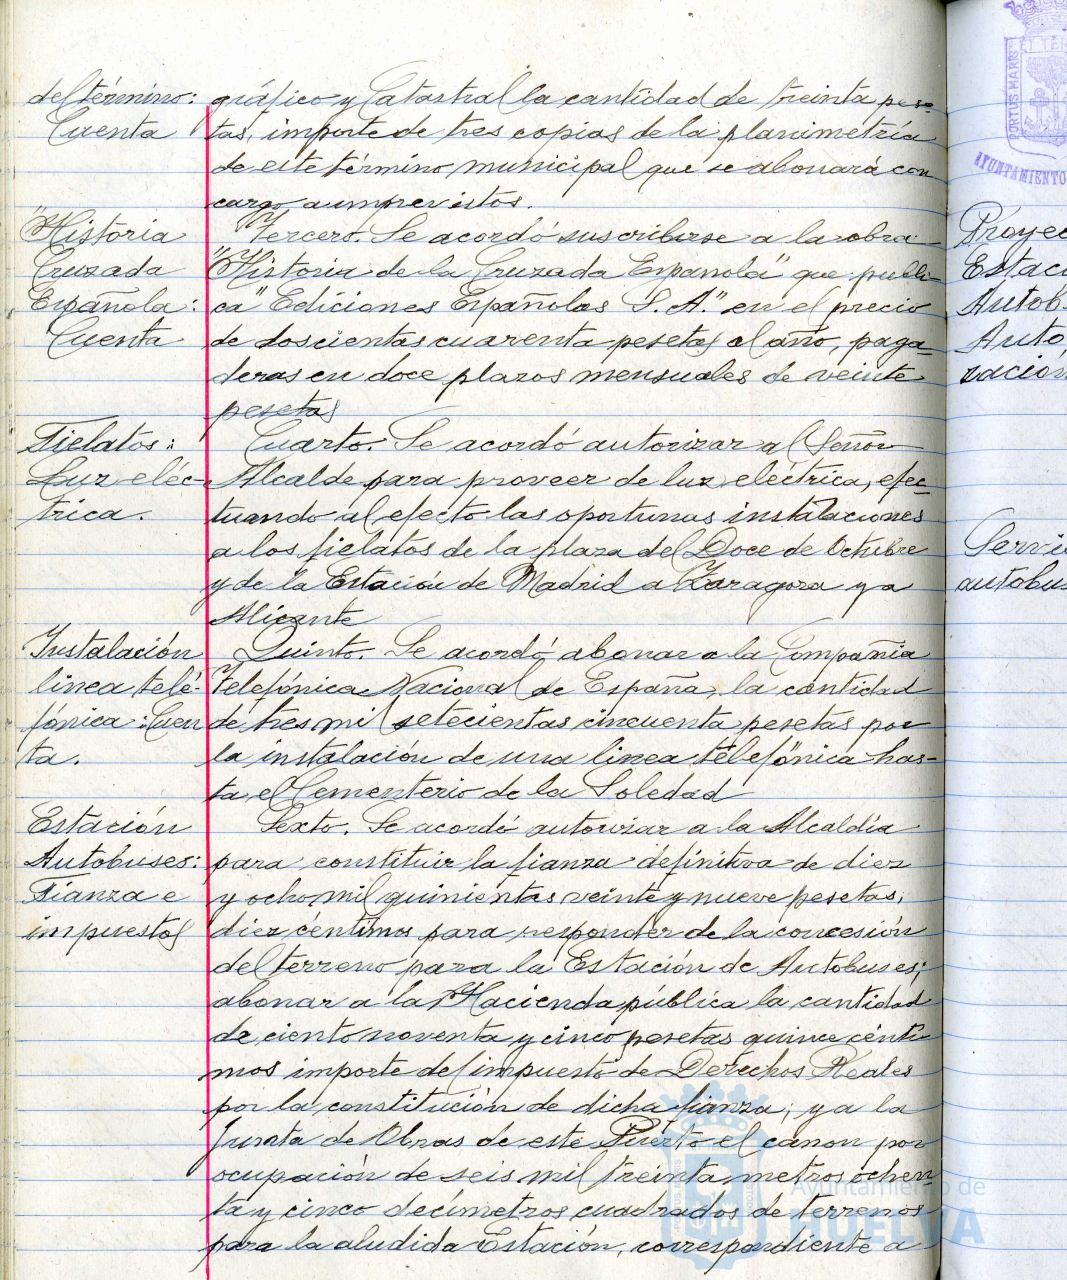 del término:
Cuenta
gráfico y Catastral la cantidad de treinta pese-
tas, importe de tres copias de la planimetría
de este término municipal que se abonará con
cargo a imprevistos.
"Historia
Cruzada
Española:
Cuenta
Tercero. Se acordó suscribirse a la obra
"Historia de la Cruzada Española" que publi-
ca "Ediciones Españolas S.A." en el precio
de doscientas cuarenta pesetas al año, paga-
deras en doce plazos mensuales de veinte
pesetas
Fielatos:
Luz eléc-
trica.
Cuarto. Se acordó autorizar al Señor
Alcalde para proveer de luz eléctrica, efec-
tuando al efecto las oportunas instalaciones
a los fielatos de la plaza del Doce de Octubre
y de la Estación de Madrid a Zaragoza y a
Alicante
Instalación
linea telé-
fónica: Cuen
ta.
Quinto. Se acordó abonar a la Compañia
Telefónica Nacional de España, la cantidad
de tres mil setecientas cincuenta pesetas por
la instalación de una linea telefónica has-
ta el Cementerio de la Soledad
Estación
Autobuses:
Fianza e
impuestos
Sexto. Se acordó autorizar a la Alcaldía
para constituir la fianza definitiva de diez
y ocho mil quinientas veinte y nueve pesetas,
diez céntimos para responder de la concesión
del terreno para la Estación de Autobuses;
abonar a la Hacienda pública la cantidad
de ciento noventa y cinco pesetas quince cénti-
mos importe del impuesto de Derechos Reales
por la constitución de dicha fianza; y a la
Junta de Obras de este Puerto el canon por
ocupación de seis mil treinta metros ochen-
ta y cinco decímetros cuadrados de terrenos
para la aludida Estación, correspondiente a
Proyec
Estaci
Autob
Auto
zación
Servi
autobus
PORTUS MARIS
ET TER
AYUNTAMIENTO
Ayuntamiento de
HUELVA